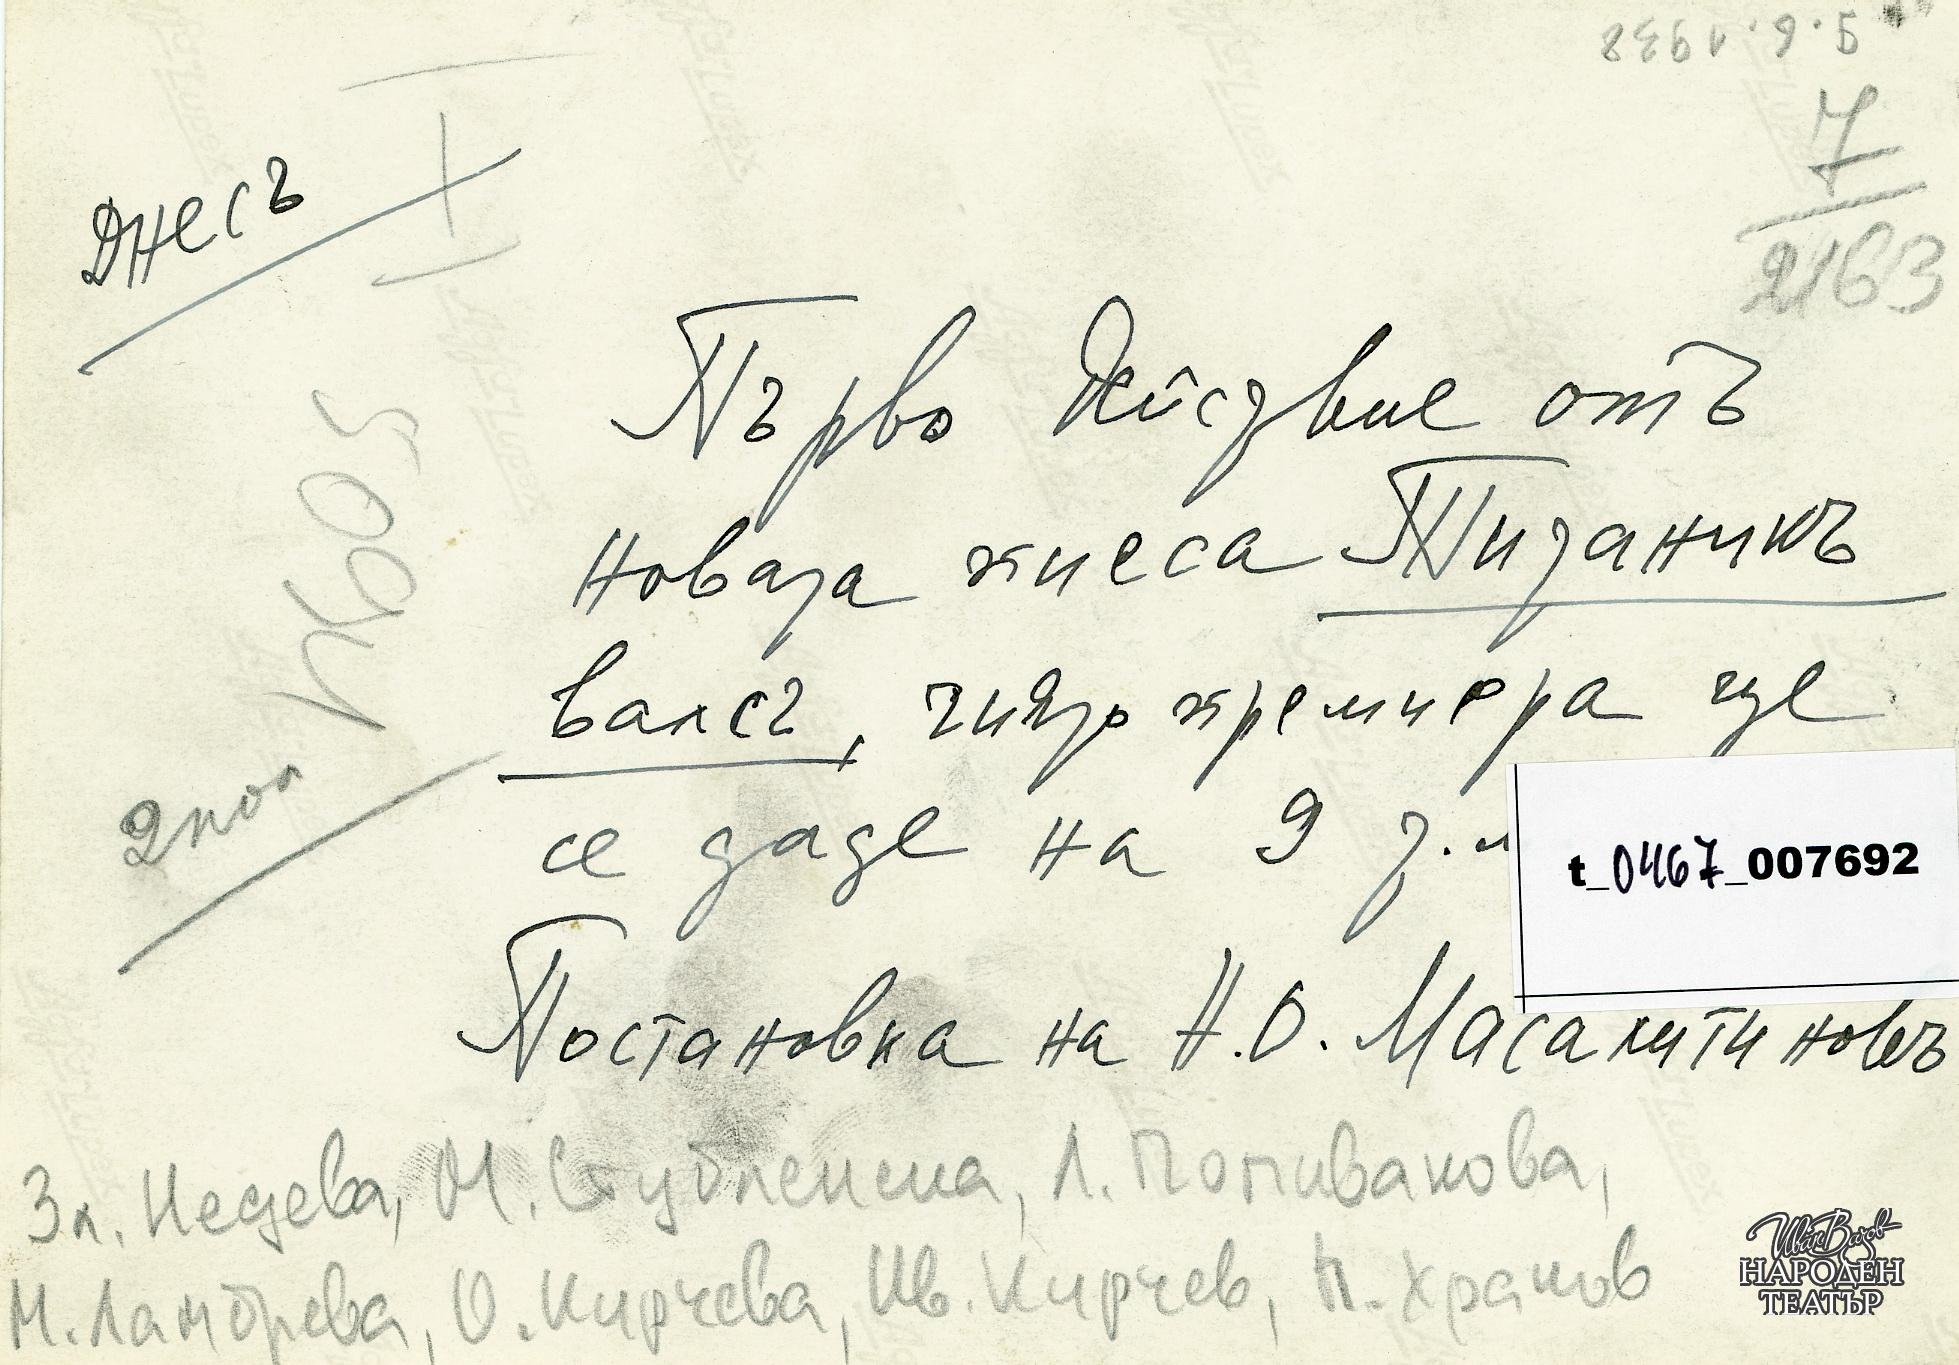 9.6.1938
7
2163
Днесъ
I
2 кол
Първо действие отъ
новата пиеса Титаникъ
валсъ, чиято премиера ще
се даде на 9 т.
Постановка на Н.О. Масалитиновъ
t_0467_007692
Зл. Недева, М. Стубленска, Л. Попиванова,
М. Ламбрева, О. Кирчева, Ив. Кирчев, П. Храмов
Иван Вазов
НАРОДЕН
ТЕАТЪР